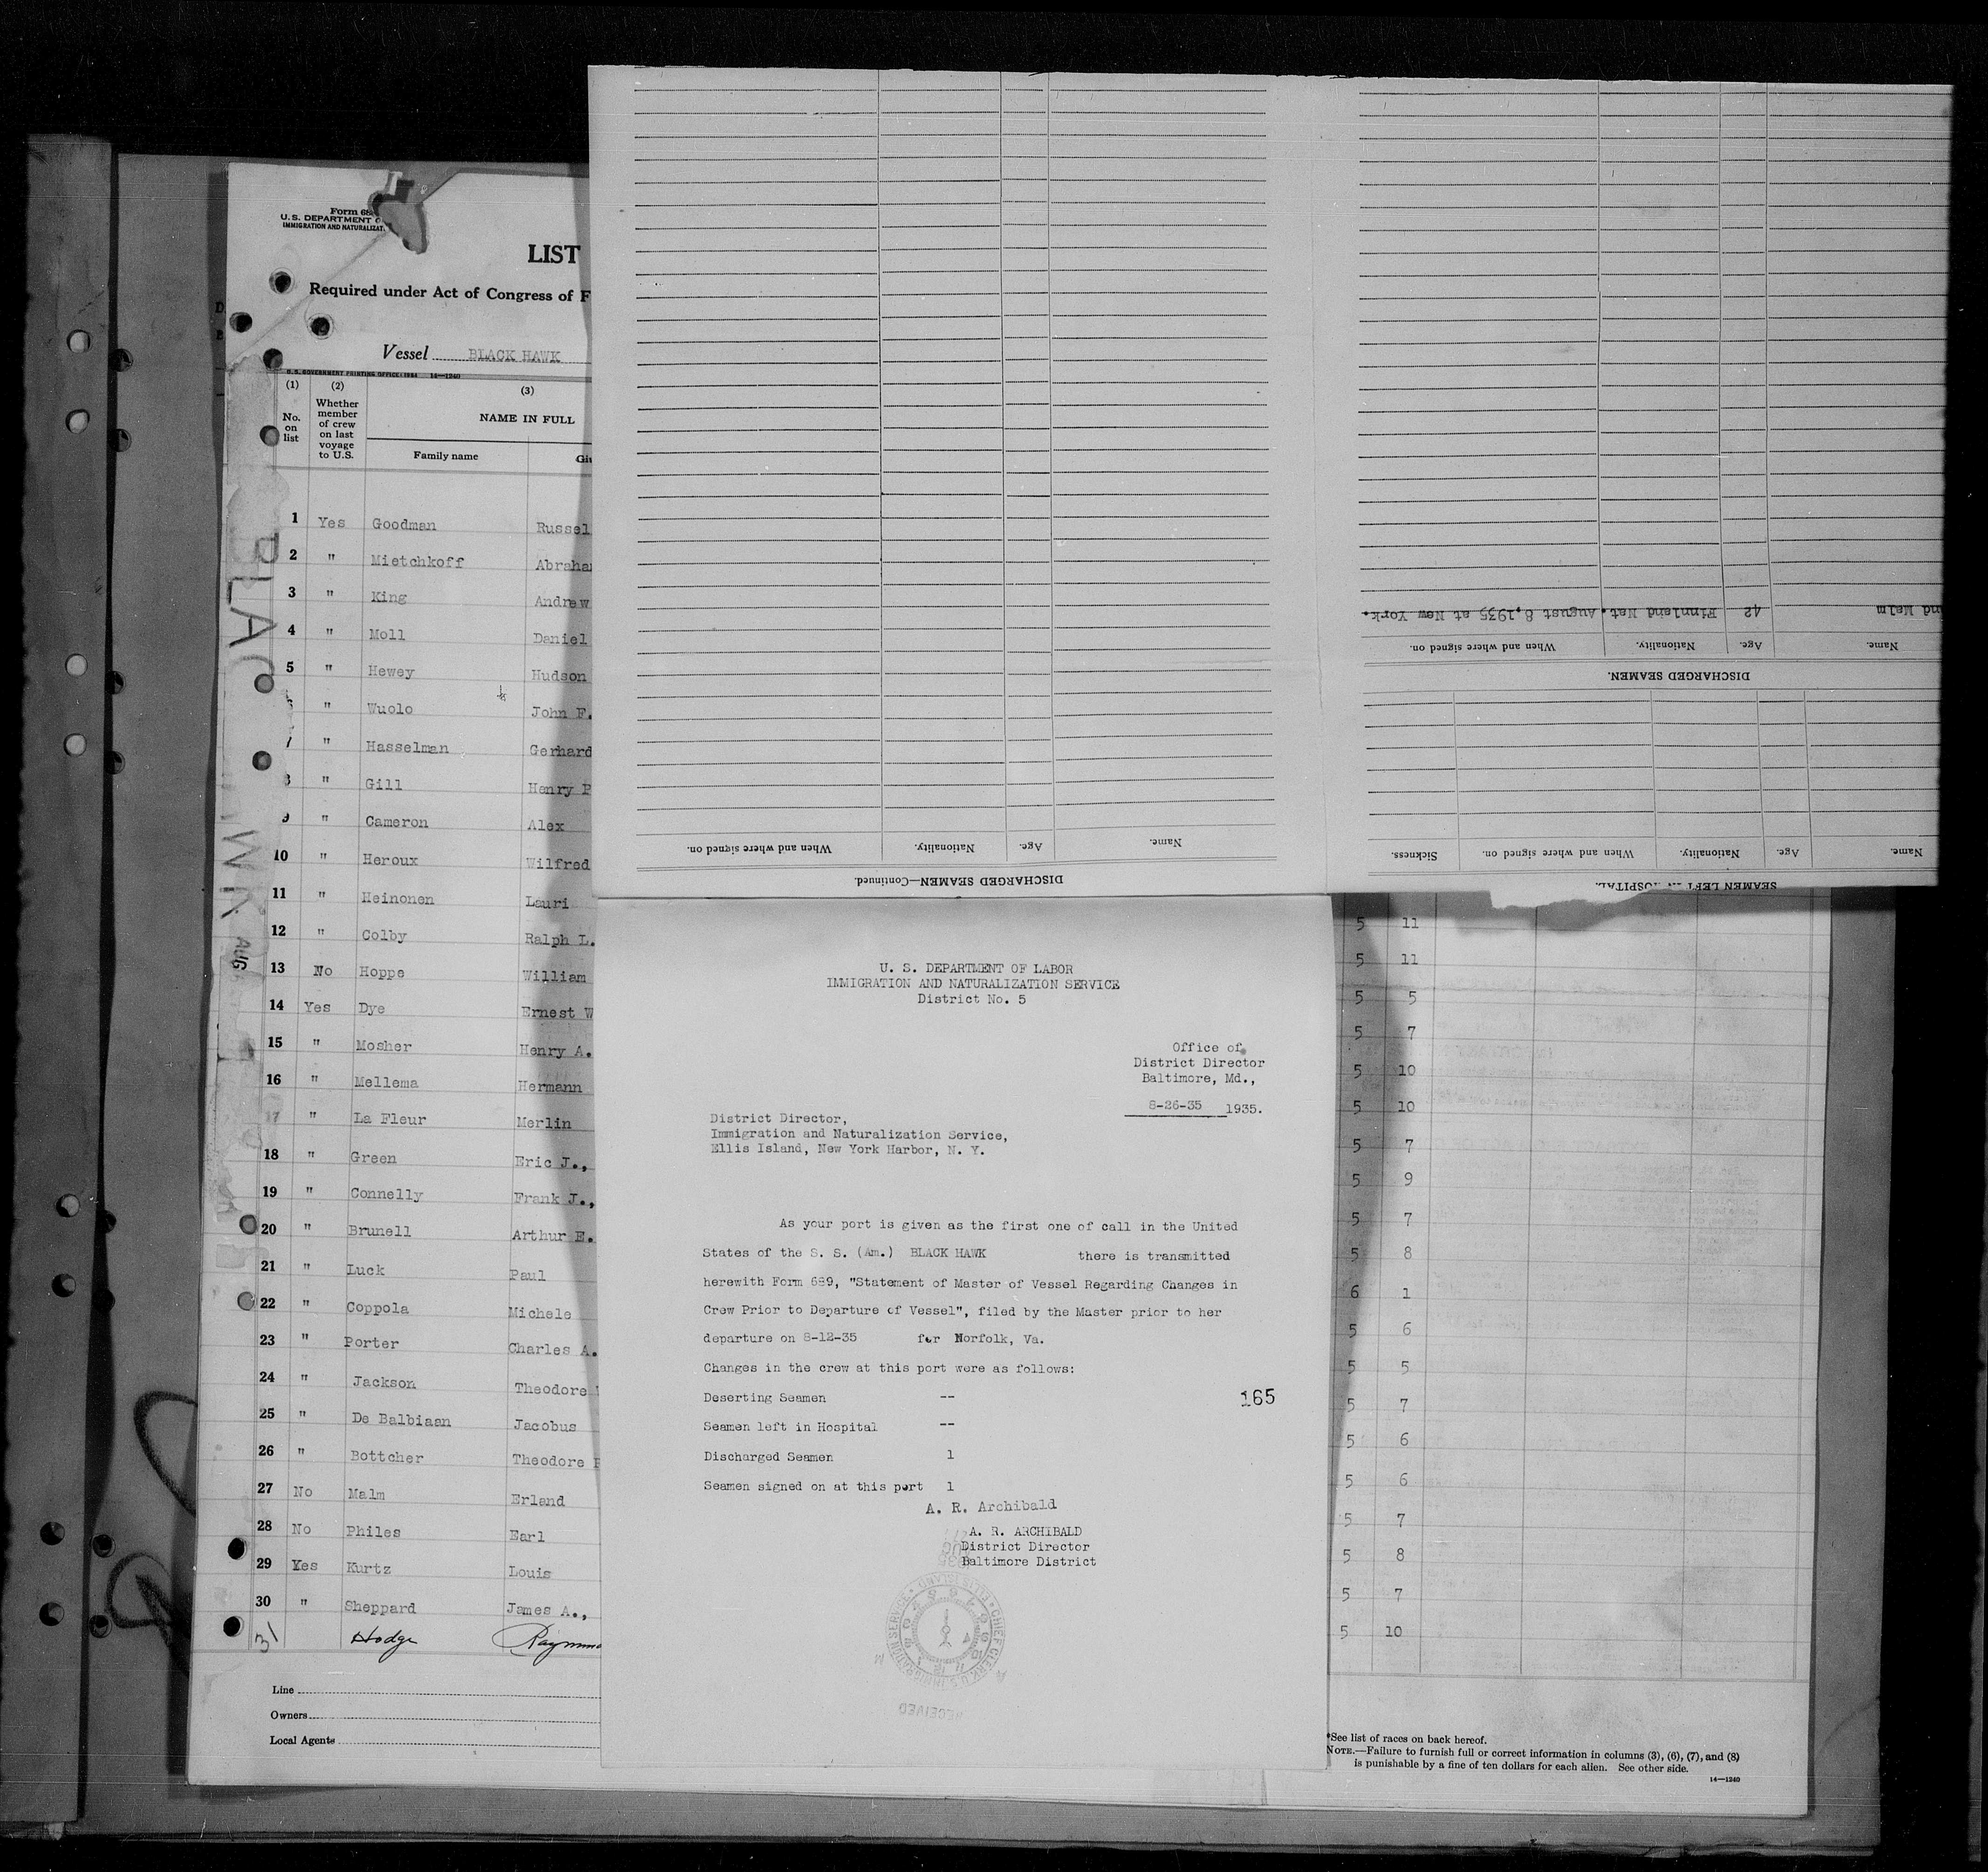 Form 68
U. S. DEPARTMENT O
IMMIGRATION AND NATURALIZAT
LIST
Required under Act of Congress of F
Vessel BLACK HAWK
U. S. GOVERNMENT PRINTING OFFICE: 1934 14—1240
(1) (2) (3)
No. on list
Whether member of crew on last voyage to U.S.
NAME IN FULL
Family name Giv
1 Yes Goodman Russel
2 " Mietchkoff Abraha
3 " King Andrew
4 " Moll Daniel
5 " Hewey Hudson
6 " Wuolo John F.
7 " Hasselman Gerhard
8 " Gill Henry P
9 " Cameron Alex
10 " Heroux Wilfred
11 " Heinonen Lauri
12 " Colby Ralph L.
13 No Hoppe William
14 Yes Dye Ernest W
15 " Mosher Henry A.
16 " Mellema Hermann
17 " La Fleur Merlin
18 " Green Eric J.,
19 " Connelly Frank J.,
20 " Brunell Arthur E.
21 " Luck Paul
22 " Coppola Michele
23 " Porter Charles A.
24 " Jackson Theodore
25 " De Balbiaan Jacobus
26 " Bottcher Theodore
27 No Malm Erland
28 No Philes Earl
29 Yes Kurtz Louis
30 " Sheppard James A.,
31 Hodge Raymon
Line
Owners
Local Agents
AUG
SEAMEN LEFT IN HOSPITAL.
Name. Age. Nationality. When and where signed on. Sickness.
DISCHARGED SEAMEN.
Name. Age. Nationality. When and where signed on.
nd Malm 42 Finnland Nat. August 8,1935 at New York.
DISCHARGED SEAMEN—Continued.
Name. Age. Nationality. When and where signed on.
U. S. DEPARTMENT OF LABOR
IMMIGRATION AND NATURALIZATION SERVICE
District No. 5
Office of
District Director
Baltimore, Md.,
8-26-35 1935.
District Director,
Immigration and Naturalization Service,
Ellis Island, New York Harbor, N. Y.
As your port is given as the first one of call in the United
States of the S. S. (Am.) BLACK HAWK there is transmitted
herewith Form 689, "Statement of Master of Vessel Regarding Changes in
Crew Prior to Departure of Vessel", filed by the Master prior to her
departure on 8-12-35 for Norfolk, Va.
Changes in the crew at this port were as follows:
Deserting Seamen --
165
Seamen left in Hospital --
Discharged Seamen 1
Seamen signed on at this port 1
A. R. Archibald
A. R. ARCHIBALD
District Director
Baltimore District
CHIEF CLERK, U.S. IMMIGRATION SERVICE
ELLIS ISLAND
RECEIVED
5 11
5 11
5 5
5 7
5 10
5 10
5 7
5 9
5 7
5 8
6 1
5 6
5 5
5 7
5 6
5 6
5 7
5 8
5 7
5 10
*See list of races on back hereof.
NOTE.—Failure to furnish full or correct information in columns (3), (6), (7), and (8)
is punishable by a fine of ten dollars for each alien. See other side.
14—1240